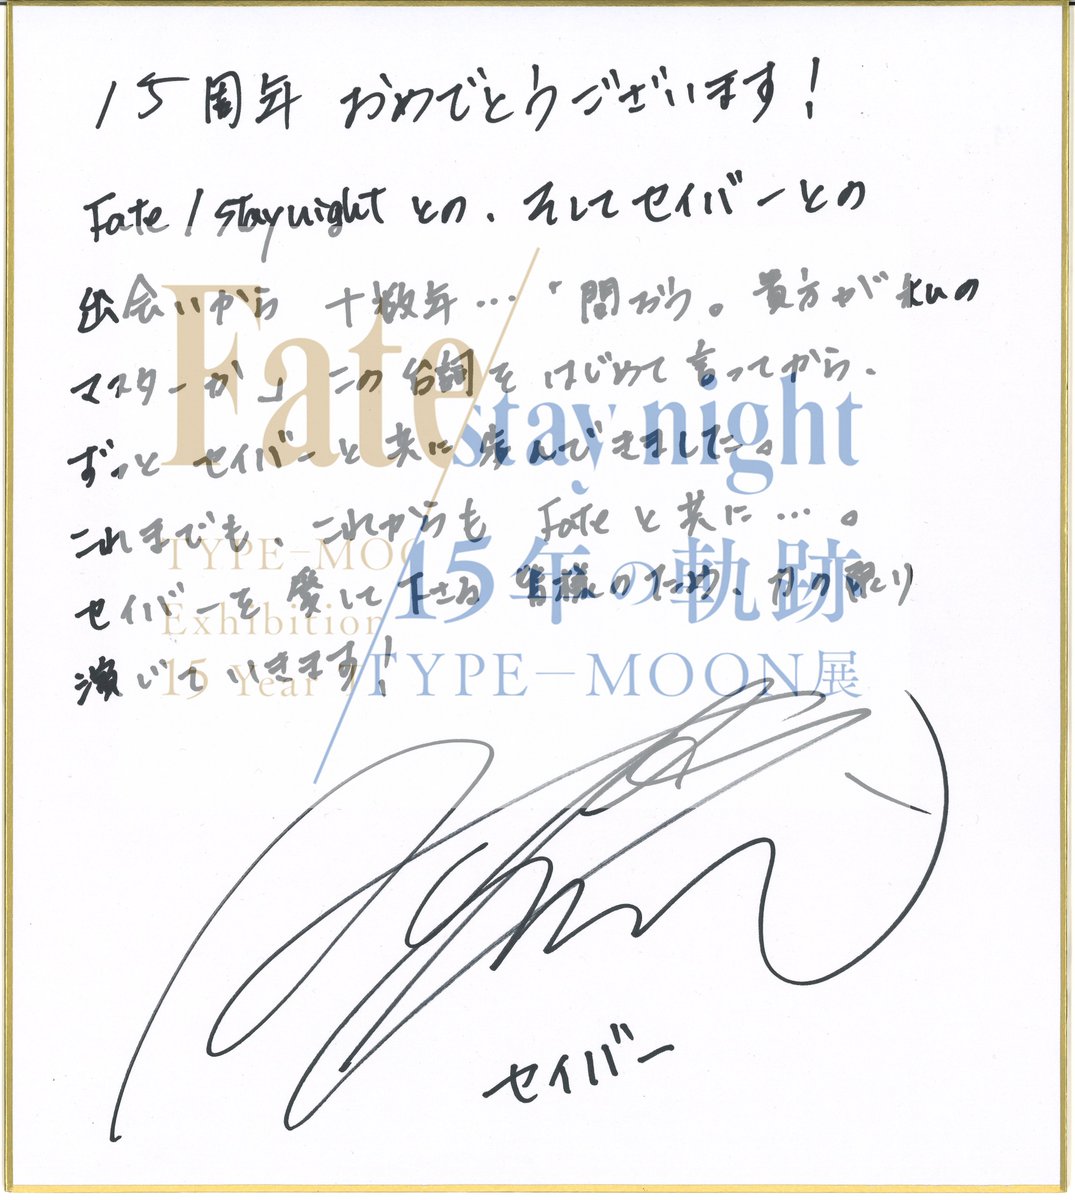 15周年 おめでとうございます!
Fate/stay night との、そしてセイバーとの
出会いから 十数年…「問おう。貴方が私の
マスターか」この台詞をはじめて言ってから、
ずっと セイバーと共に歩んできました。
これまでも、これからも Fateと共に…。
セイバーを愛して下さる 皆様のため、力の限り
演じていきます!
Fate/stay night
TYPE-MOON
Exhibition
15 Year
15年の軌跡
TYPE-MOON展
セイバー